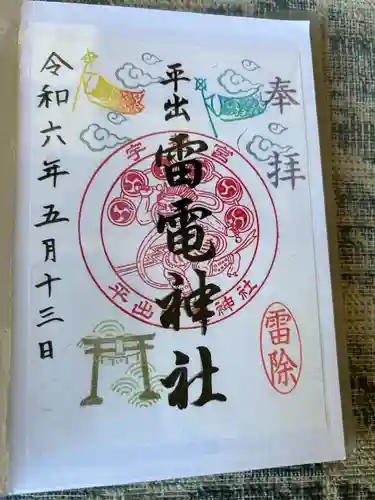 奉拝
平出
雷電神社
宇 宮
平出 神社
雷除
令和六年五月十三日